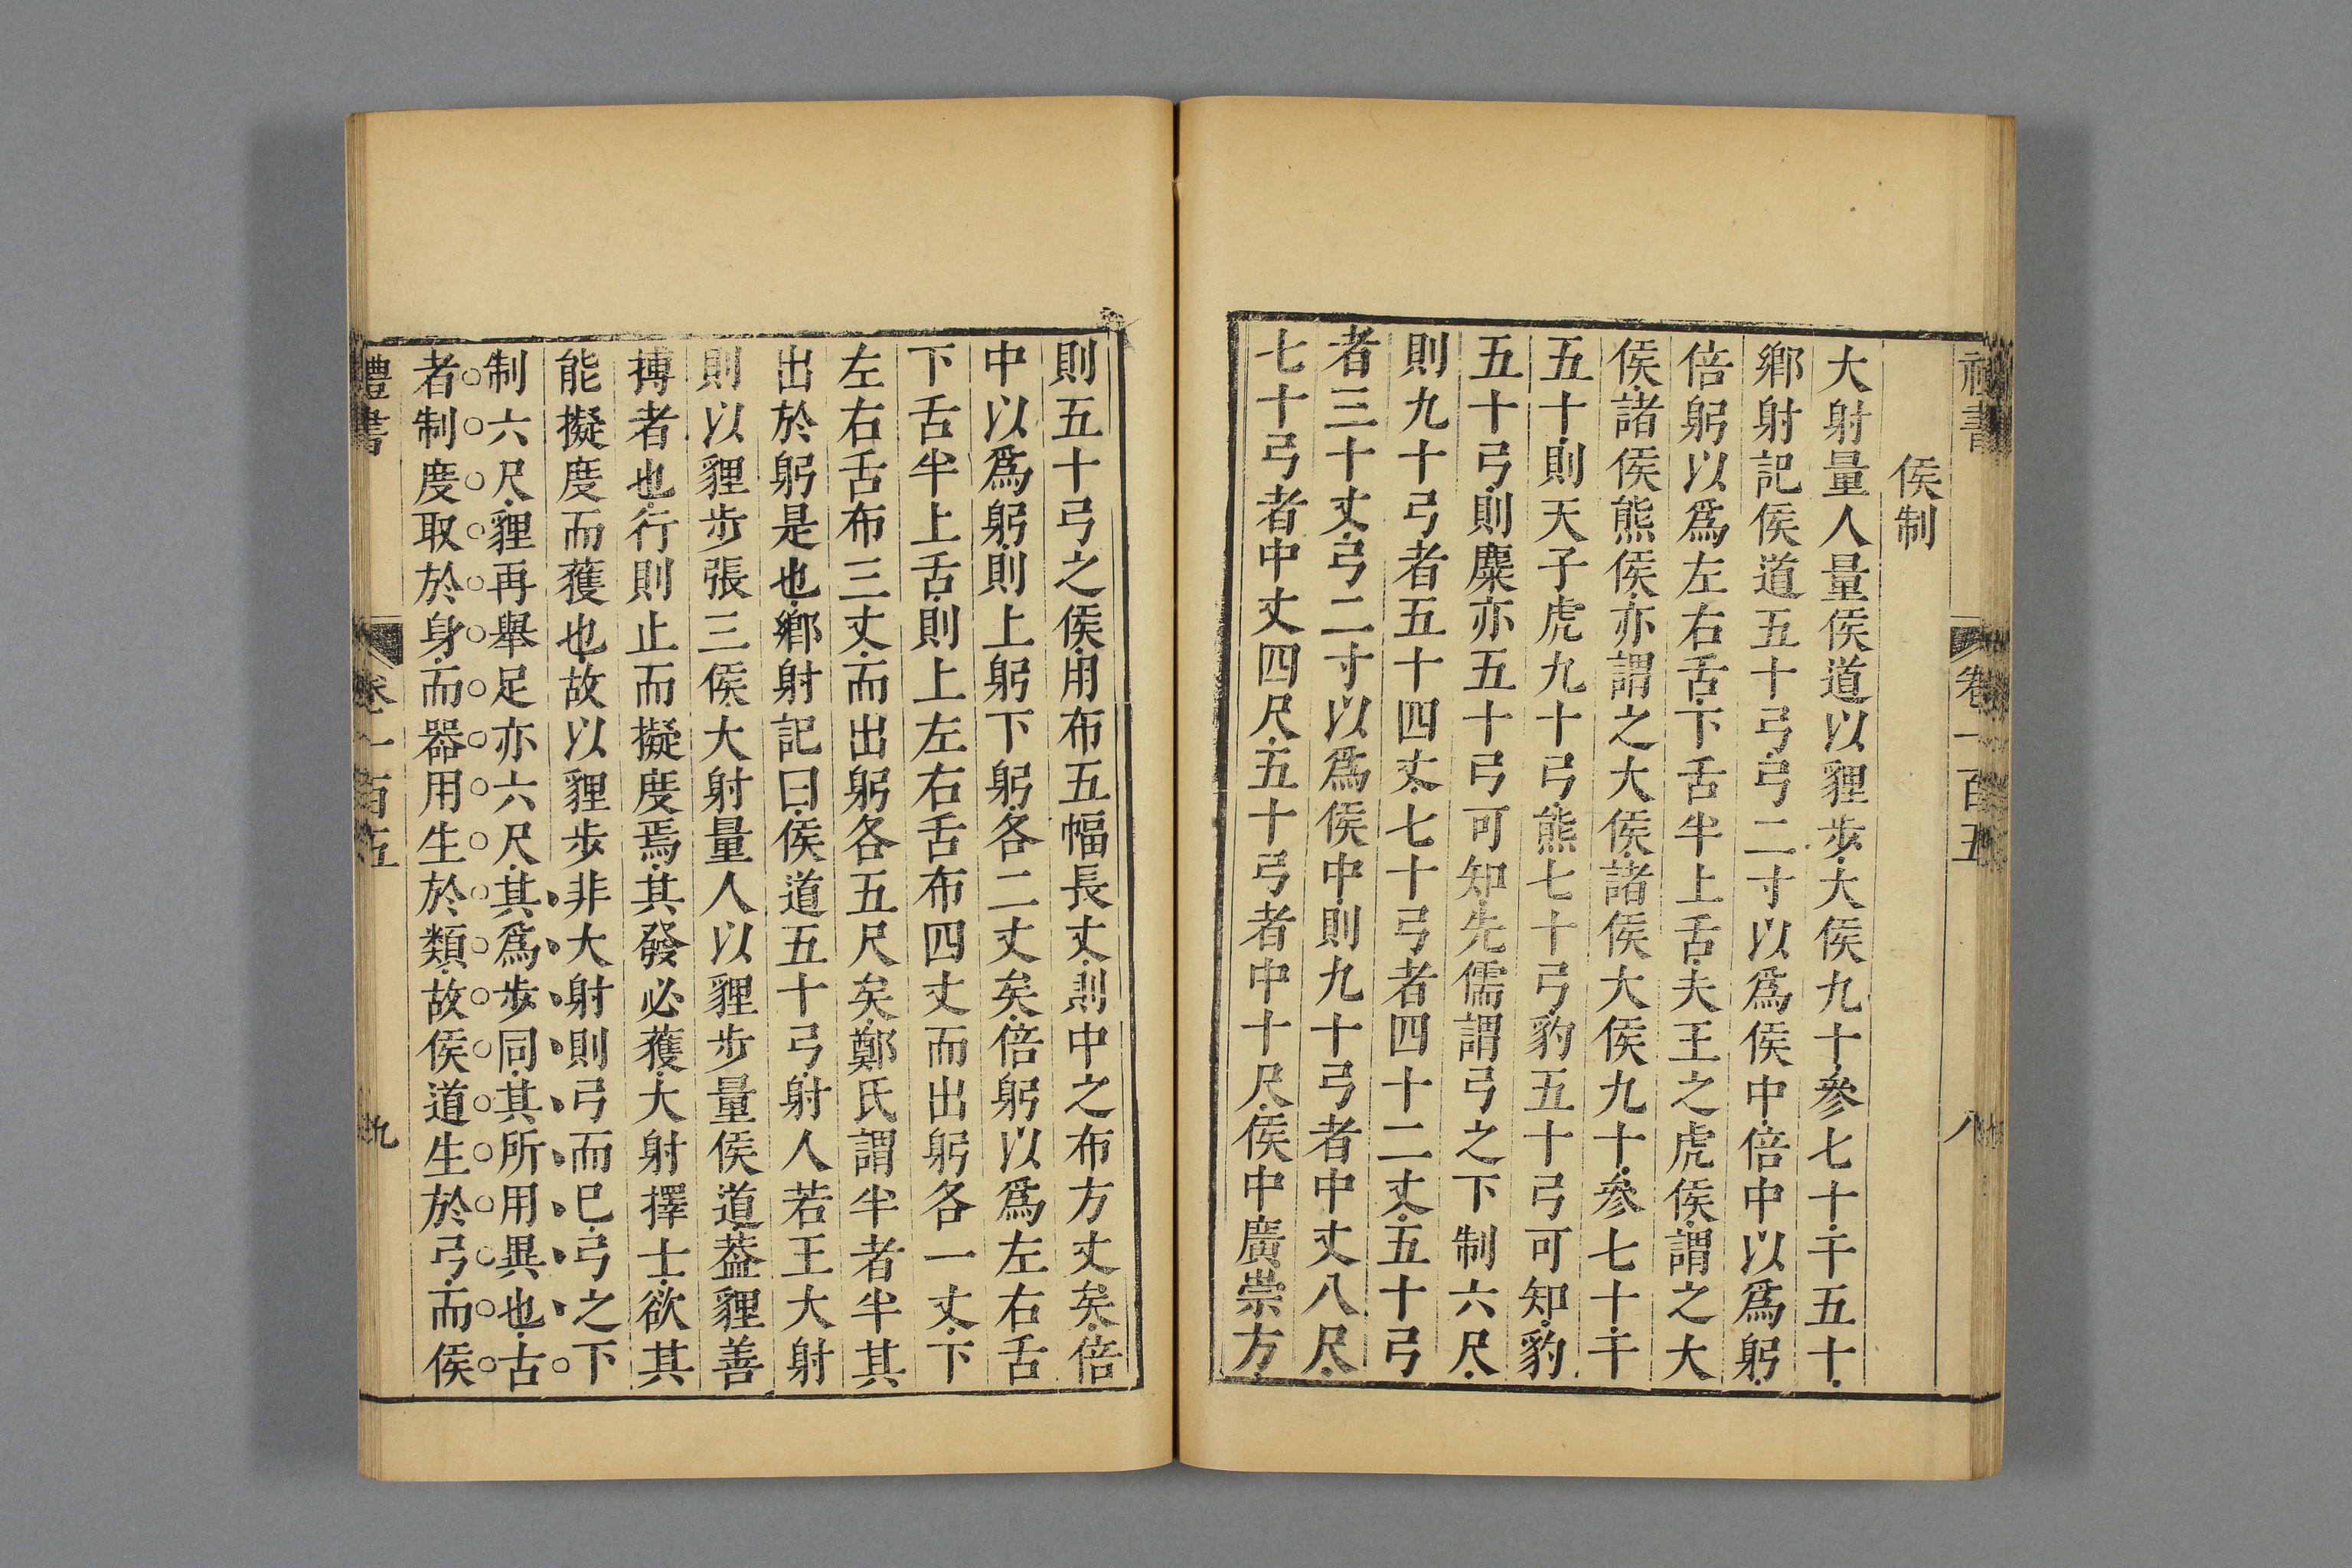 禮書 卷一百五 八
侯制
大射量人量侯道以貍步大侯九十參七十干五十
鄉射記侯道五十弓弓二寸以爲侯中倍中以爲躬
倍躬以爲左右舌下舌半上舌夫王之虎侯謂之大
侯諸侯熊侯亦謂之大侯諸侯大侯九十參七十干
五十則天子虎九十弓熊七十弓豹五十弓可知豹
五十弓則麋亦五十弓可知先儒謂弓之下制六尺
則九十弓者五十四丈七十弓者四十二丈五十弓
者三十丈弓二寸以爲侯中則九十弓者中丈八尺
七十弓者中丈四尺五十弓者中十尺侯中廣崇方
則五十弓之侯用布五幅長丈則中之布方丈矣倍
中以爲躬則上躬下躬各二丈矣倍躬以爲左右舌
下舌半上舌則上左右舌布四丈而出躬各一丈下
左右舌布三丈而出躬各五尺矣鄭氏謂半者半其
出於躬是也鄉射記曰侯道五十弓射人若王大射
則以貍步張三侯大射量人以貍步量侯道葢貍善
搏者也行則止而擬度焉其發必獲大射擇士欲其
能擬度而獲也故以貍步非大射則弓而已弓之下
制六尺貍再舉足亦六尺其爲步同其所用異也古
者制度取於身而器用生於類故侯道生於弓而侯
禮書 卷一百五 九